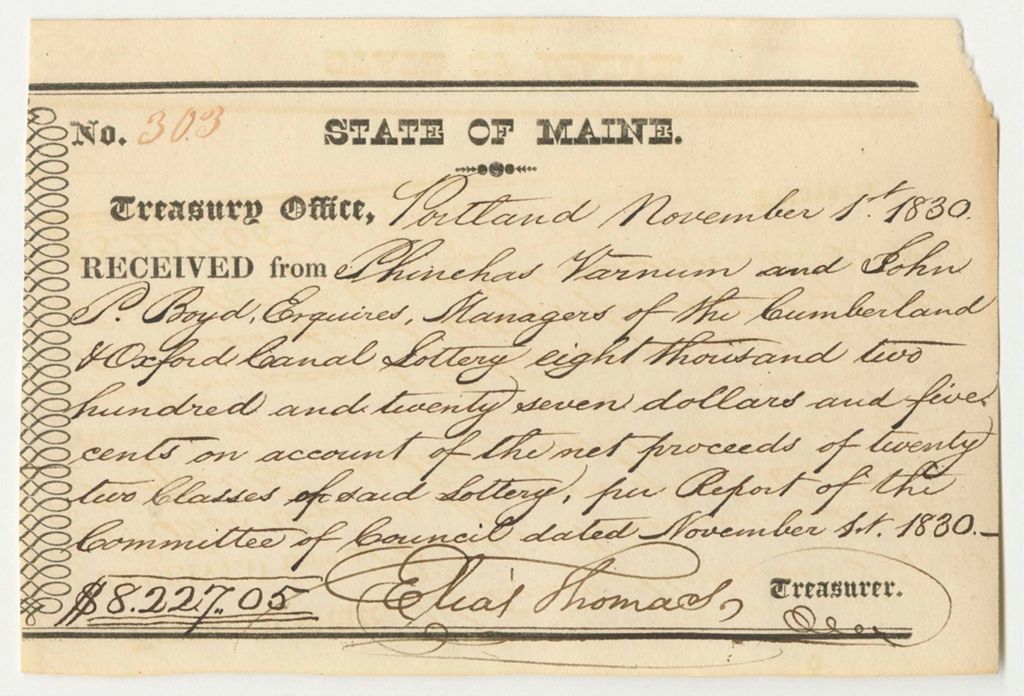 No. 303 STATE OF MAINE.
Treasury Office, Portland November 1st. 1830.
RECEIVED from Phinehas Varnum and John
P. Boyd, Esquires, Managers of the Cumberland
& Oxford Canal Lottery eight thousand two
hundred and twenty seven dollars and five
cents on account of the net proceeds of twenty
two Classes of said Lottery, per Report of the
Committee of Council dated November 1st. 1830.—
$8.227.05 Elias Thomas, Treasurer.